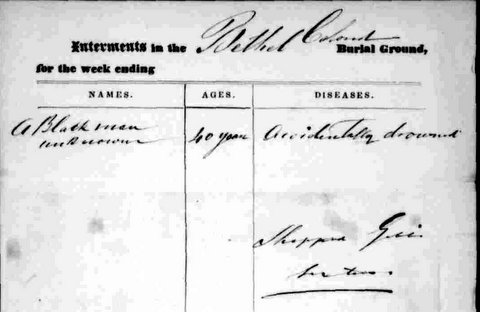 Interments in the Bethel Colord Burial Ground,
for the week ending
NAMES. AGES. DISEASES.
A Black man 40 year Accidentally drowned
unknown